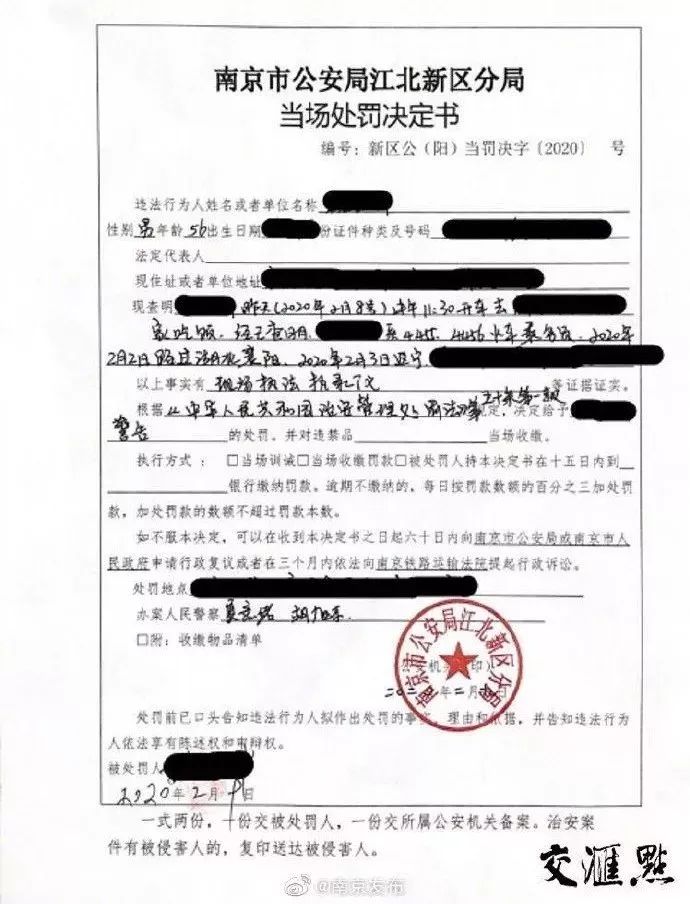 南京市公安局江北新区分局
当场处罚决定书
编号：新区公（阳）当罚决字〔2020〕 号
违法行为人姓名或者单位名称
性别 男 年龄 56 出生日期 份证件种类及号码
法定代表人
现住址或者单位地址
现查明 昨天(2020年2月8号)上午11:30开车去
家吃饭，经查明， 乘务员，2020年
2月2日路过湖北襄阳，2020年2月3日返宁
以上事实有 现场执法 等证据证实。
根据《中华人民共和国治安管理处罚法》第五十条第一款规定，决定给予
警告 的处罚。并对违禁品 当场收缴。
执行方式：□当场训诫□当场收缴罚款□被处罚人持本决定书在十五日内到
银行缴纳罚款。逾期不缴纳的，每日按罚款数额的百分之三加处罚
款，加处罚款的数额不超过罚款本数。
如不服本决定，可以在收到本决定书之日起六十日内向南京市公安局或南京市人
民政府申请行政复议或者在三个月内依法向南京铁路运输法院提起行政诉讼。
处罚地点
办案人民警察
□附：收缴物品清单
南京市公安局江北新区分局
年二月
处罚前已口头告知违法行为人拟作出处罚的事实、理由和依据，并告知违法行为
人依法享有陈述权和申辩权。
被处罚人
2020年2月9日
一式两份，一份交被处罚人，一份交所属公安机关备案。治安案
件有被侵害人的，复印送达被侵害人。
交汇點
@南京发布